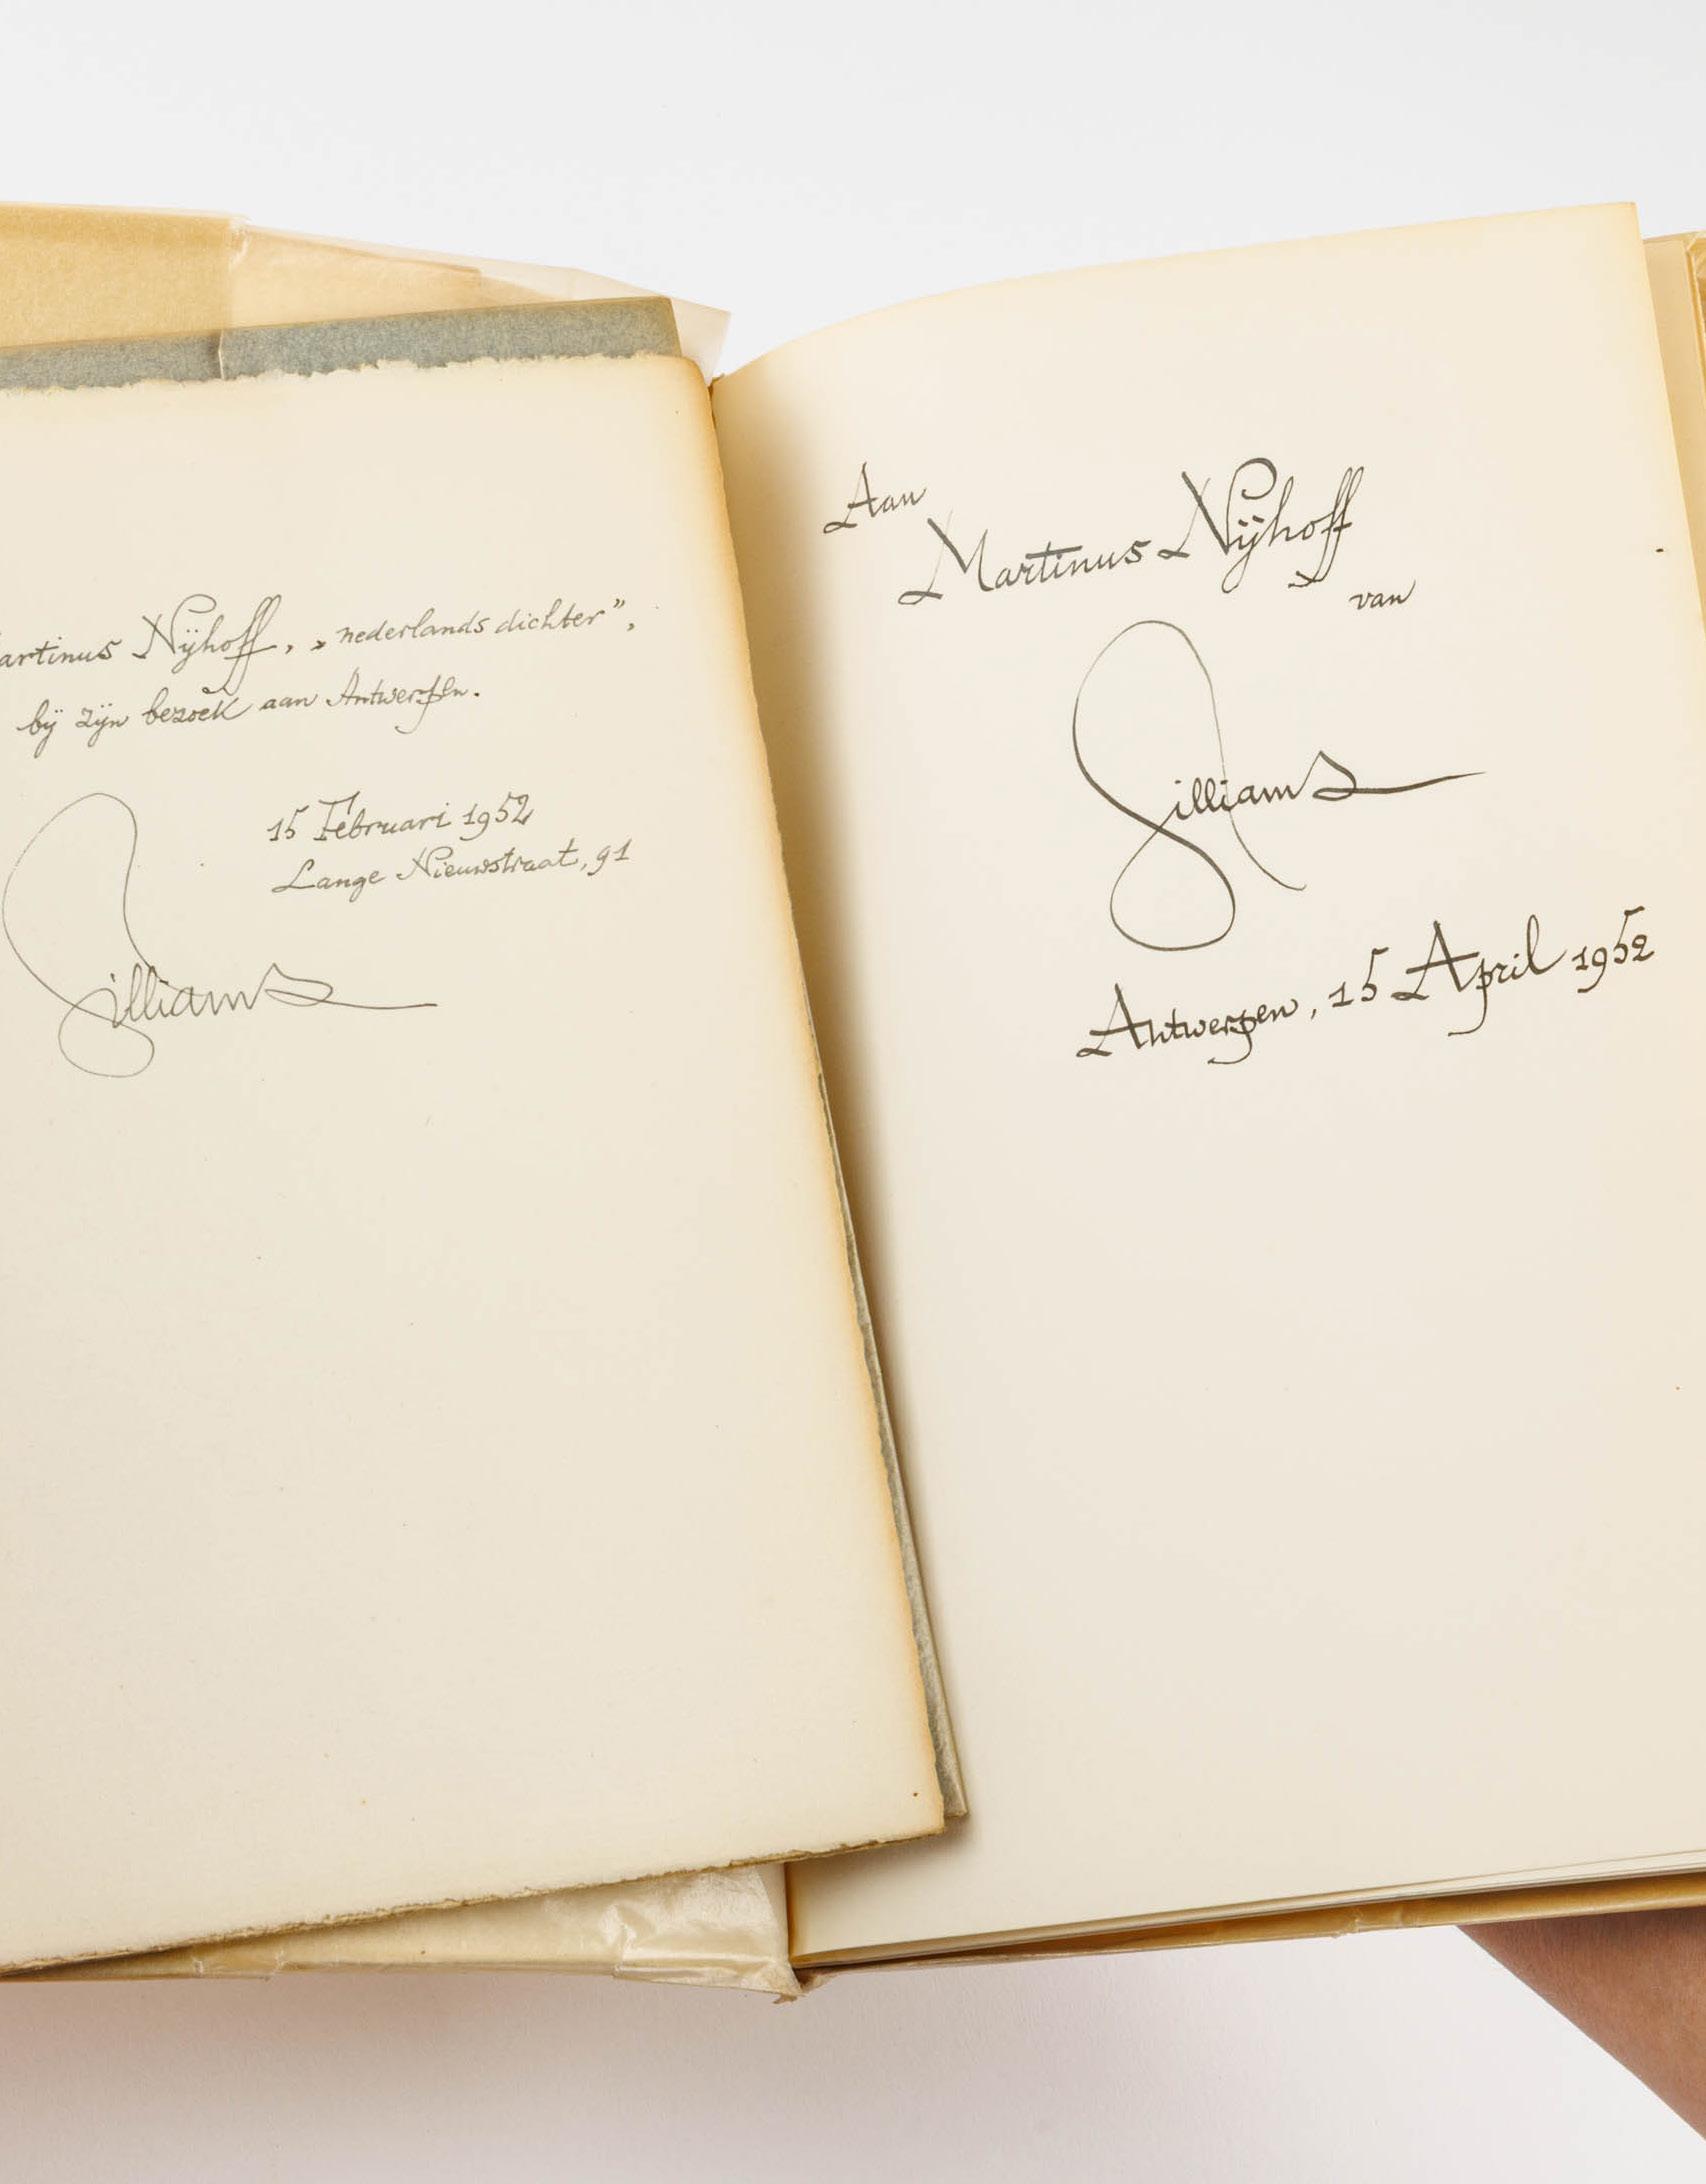 artinus Nijhoff, „nederlands dichter”,
bij zijn bezoek aan Antwerpen.
15 Februari 1952
Lange Nieuwstraat, 91
Gilliams
Aan
Martinus Nijhoff
van
Gilliams
Antwerpen, 15 April 1952